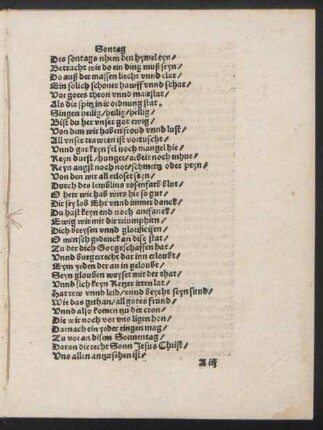 Sontag
Des sontags nhem den hymel eyn/
Betracht wie do ein ding muß seyn/
Do auß der massen liecht vnnd clar/
Ein solich schoner hawff vnnd schar/
Vor gotes thron vnnd maiestat/
Als die spitz in ir ordnung stat.
Singen heilig/heilig/heilig/
Bist du her vnser got ewig/
Von dem wir haben froud vnnd lust/
All vnser trawren ist vortuscht/
Vnnd gar keyn fel noch mangel hie/
Keyn durst/hunger/arbeit noch mhue/
Keyn angst noch not/schmertz oder peyn/
Von den wir all erloset seyn/
Durch des lemblins rosenfarb blut/
O herr wie hab wirs hie so gut/
Dir sey lob Ehr vnnd immer danck/
Du hast keyn end noch anefanck/
Ewig wir mit dir triumphirn/
Dich breysen vnnd glorificirn/
O mensch gedenck an dise stat/
Zu der dich Got geschaffen hat/
Vnnd burgerrecht dar inn erloubt/
Eym yeden der an in geloubt/
Seyn glouben weyset mit der that/
Vnnd sich keyn Ketzer irren lat/
Hat rew vnnd leid/vnnd beycht seyn sund/
Wie das gethan/all gotes frund/
Vnnd also komen zu der cron/
Die wir noch vor vns ligen hon/
Darnach ein yeder ringen mag/
Zu vor an disem Sonnentag/
Daran die recht Sonn Jesus Christ/
Vns allen antzusehen ist/
A iij